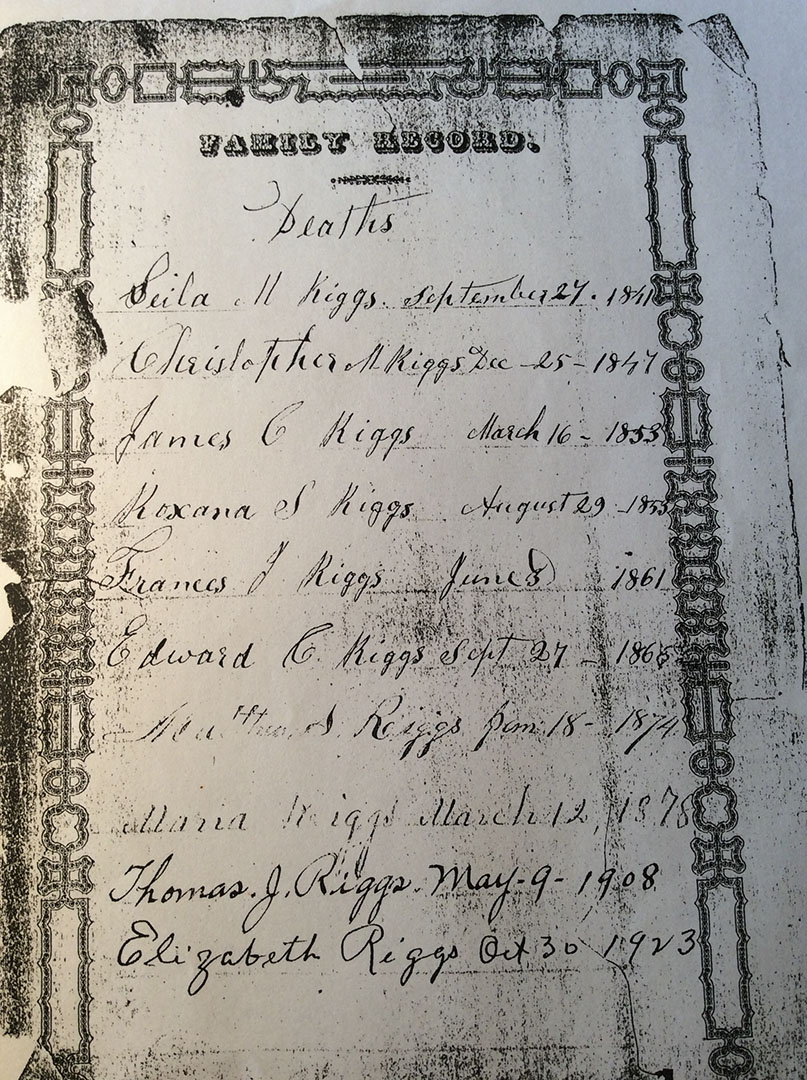 FAMILY RECORD.
Deaths
Seila M Riggs. September 27. 1841
Christopher M Riggs Dec - 25 - 1847
James C Riggs March 16 - 1853
Roxana S Riggs August 29 - 1855
Frances J Riggs June 8 1861
Edward C. Riggs Sept 27 - 1865
S. Riggs 18 - 1874
Maria Riggs March 12, 1878
Thomas. J. Riggs. May - 9 - 1908
Elizabeth Riggs Oct 30 1923